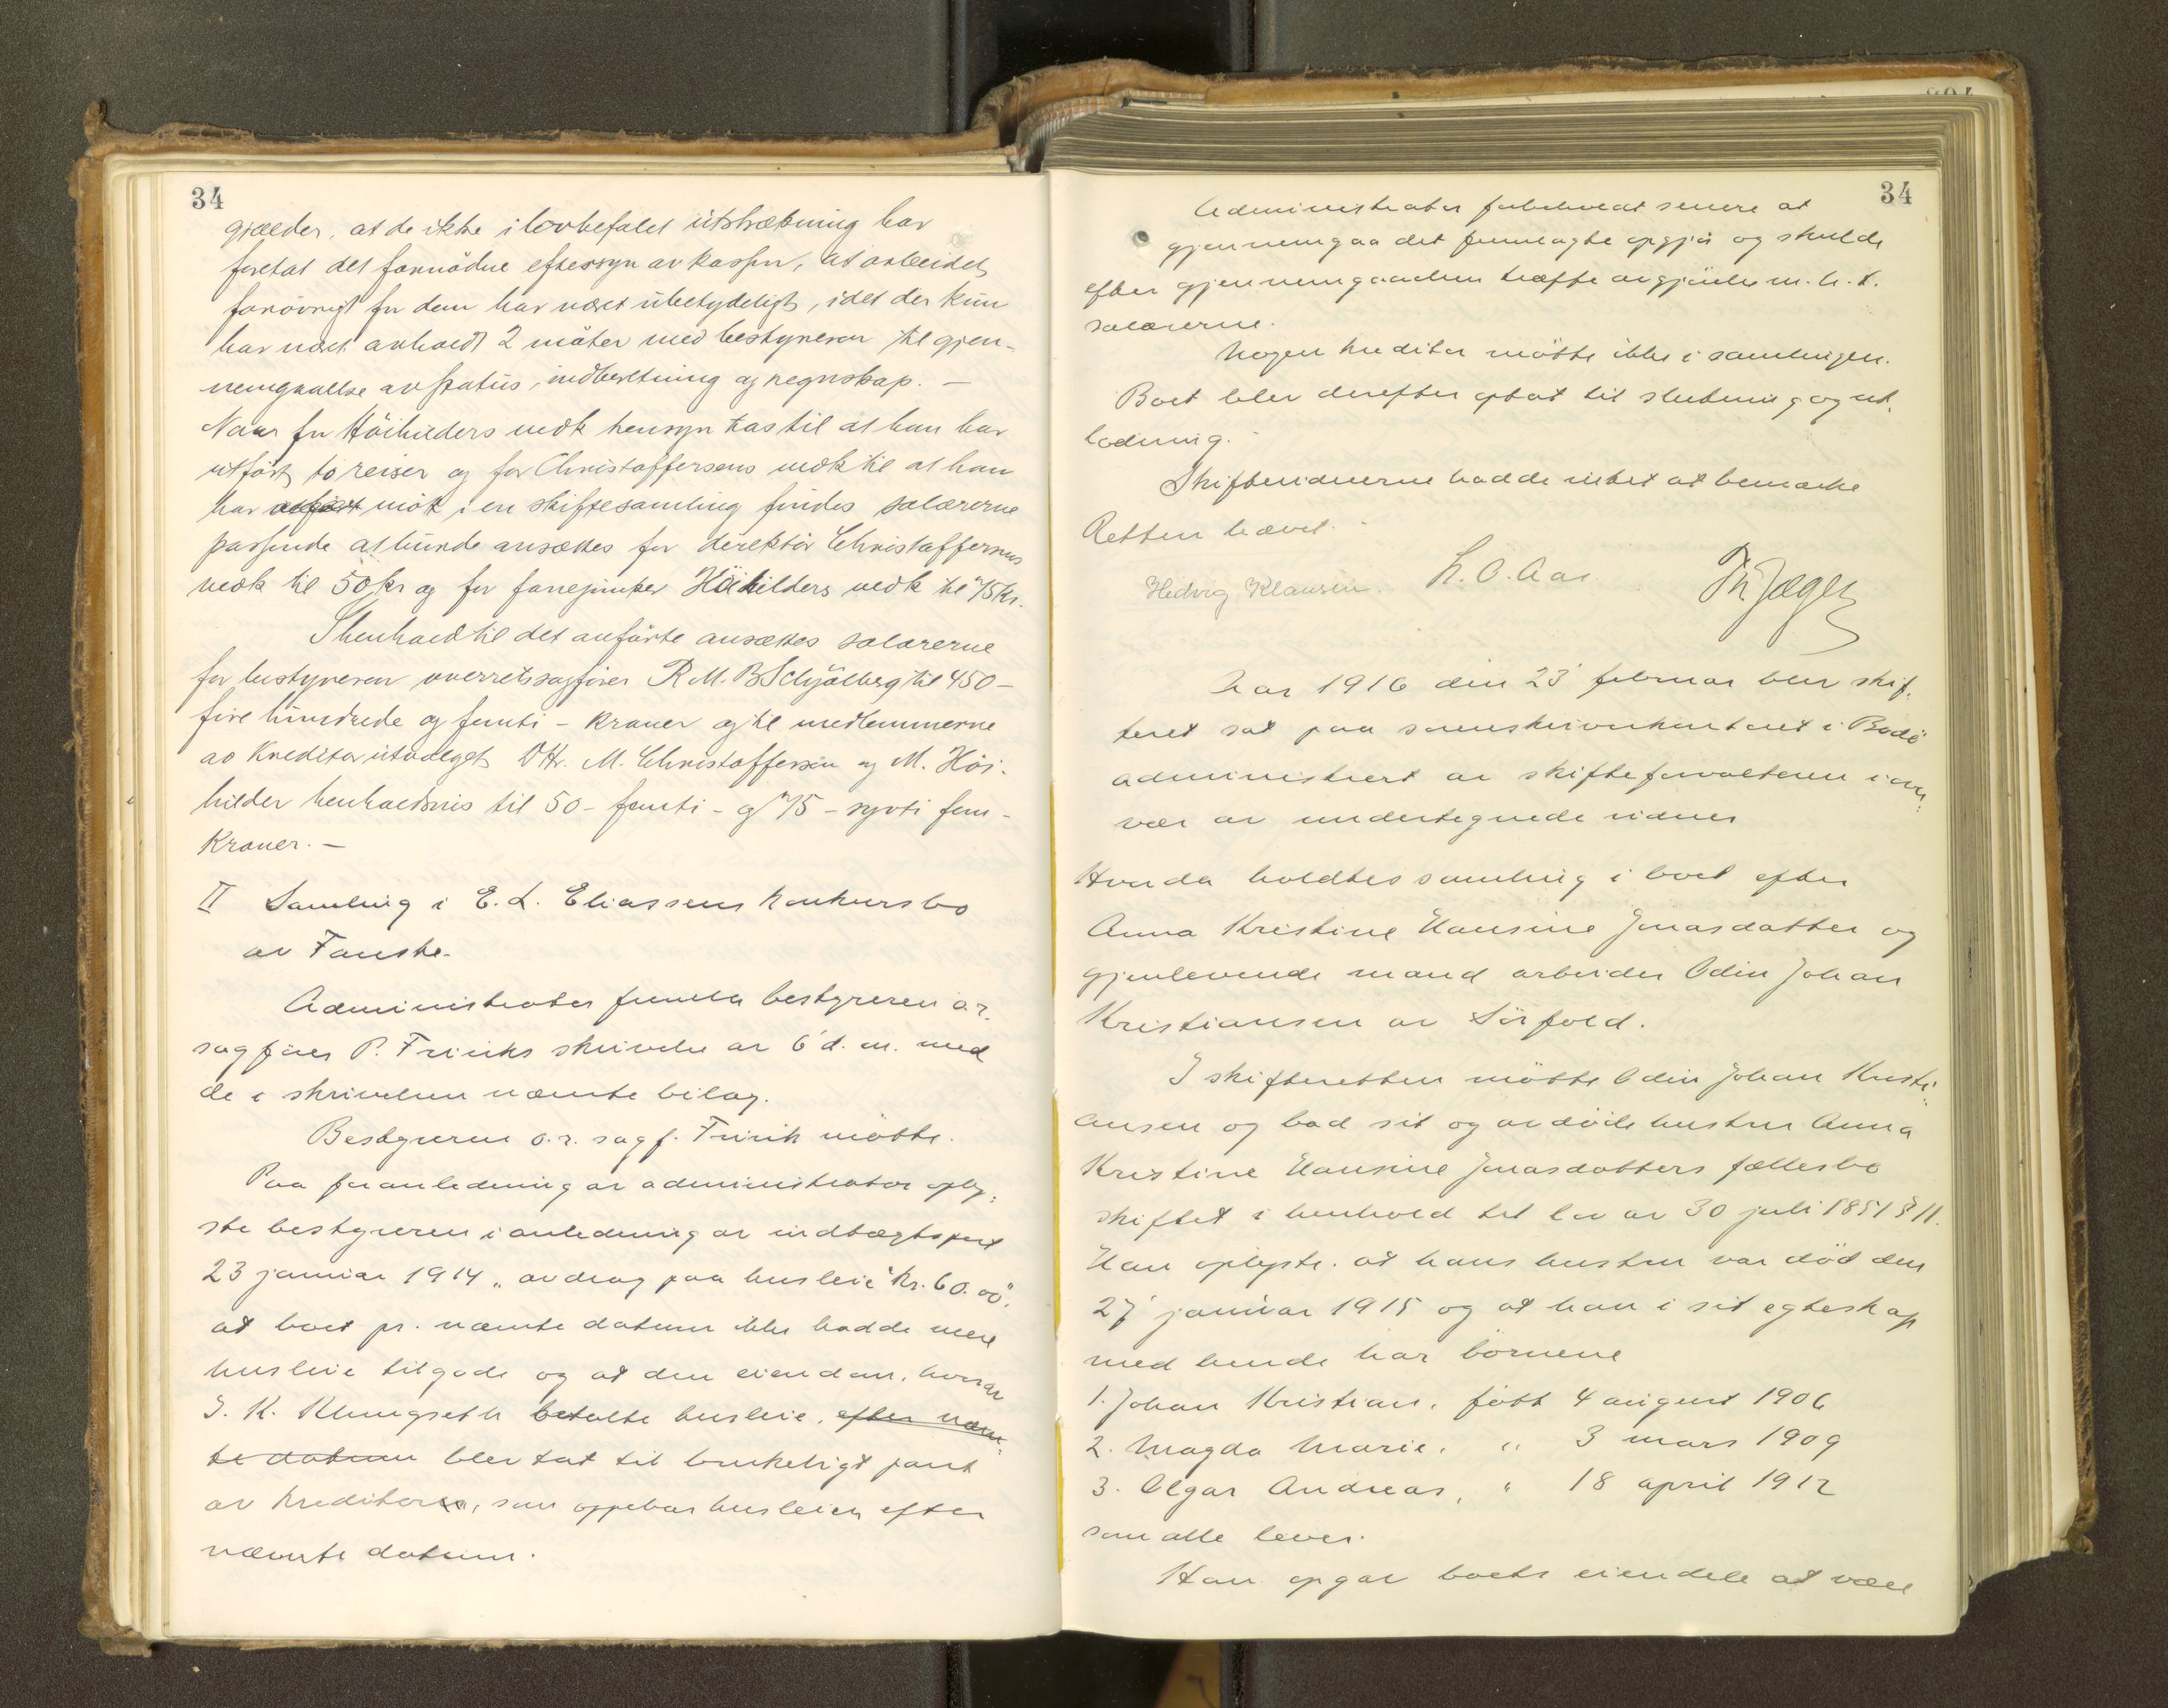 34
gjælder, at de ikke i lovbefalet utstrækning har
foretat det fornødne eftersyn av kassen, at arbeidet
forøvrigt for dem har været ubetydeligt, idet der kun
har været avholdt 2 møter med bestyreren til gjen-
nemgaaelse av status, indberetning og regnskap. —
Naar for Höihilders vedk hensyn tas til at han har
utført to reiser og for Christoffersens vedk til at han
har utført møtt i en skiftesamling findes salærerne
passende at kunde ansættes for direktør Christoffersens
vedk til 50 kr og for fanejunker Höihilders vedk til 75 kr.
I henhold til det anførte ansættes salærerne
for bestyreren overretssagfører R. M. B. Schjölberg til 450 –
fire hundrede og femti – kroner og til medlemmerne
av kreditorutvalget DHr. M. Christoffersen og M. Höi-
hilder henholdsvis til 50 – femti – og 75 – sytti fem –
kroner. —
II Samling i E. L. Eliassens konkursbo
av Fauske.
Administrator fremla bestyreren o.r.
sagfører P. Frinks skrivelse av 6' d. m. med
de i skrivelsen nævnte bilag.
Bestyreren o.r. sagf. Frink møtte.
Paa foranledning av administrator oply-
ste bestyreren i anledning av indtægtspost
23 januar 1914 „avdrag paa husleie kr. 60.00",
at boet pr. nævnte datum ikke hadde mere
husleie tilgode og at den eiendom, hvorav
J. K. Klungseth betalte husleie, efter nævn-
te datum blev tat til brukeligt pant
av kreditorer, som oppebar husleien efter
nævnte datum.
34
Administrator forbeholdt senere at
gjennemgaa det fremlagte opgjør og skulde
efter gjennemgaaelsen træffe avgjørelse m. h. t.
salærerne.
Nogen kreditor møtte ikke i samlingen.
Boet blev derefter optat til slutning og ut-
lodning.
Skiftevidnerne hadde intet at bemærke
Retten hævet.
Hedvig Klausen. L. O. Aas Th Jæger
Aar 1916 den 23' februar blev skif-
teret sat paa sorenskriverkontoret i Bodø
administrert av skifteforvalteren i over-
vær av undertegnede vidner
Hvorda holdtes samling i boet efter
Anna Kristine Hansine Jonasdatter og
gjenlevende mand arbeider Odin Johan
Kristiansen av Sørfold.
I skifteretten møtte Odin Johan Kristi-
ansen og bad sit og avdøde hustru Anna
Kristine Hansine Jonasdatters fællesbo
skiftet i henhold til lov av 30 juli 1851 § 11.
Han oplyste, at hans hustru var død den
27' januar 1915 og at han i sit egteskap
med hende har børnene
1. Johan Kristian, født 4 august 1906
2. Magda Marie, " 3 mars 1909
3. Olgar Andreas, " 18 april 1912
som alle lever.
Han opgav boets eiendele at være